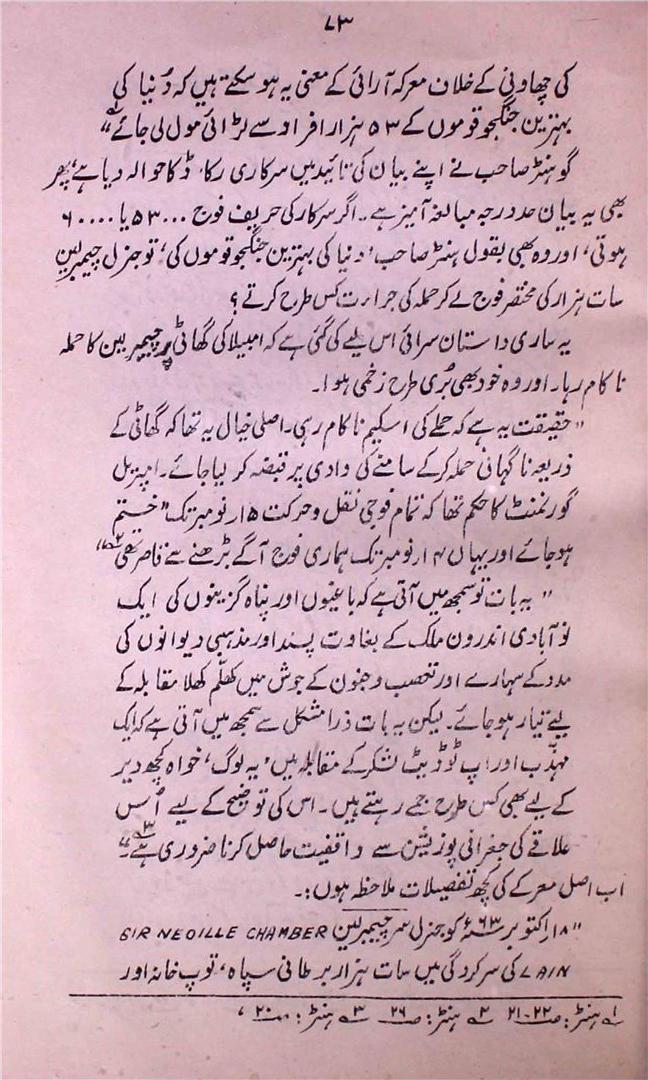 ۷۳
کی چھاونی کے خلاف معرکہ آرائی کے معنی یہ ہو سکتے ہیں کہ دُنیا کی
بہترین جنگجو قوموں کے ۵۳ ہزار افراد سے لڑائی مول لی جائے۱؎"
گو ہنٹر صاحب نے اپنے بیان کی تائید میں سرکاری رکارڈ کا حوالہ دیا ہے، پھر
بھی یہ بیان حد درجہ مبالغہ آمیز ہے۔ اگر سرکار کی حریف فوج ۵۳۰۰۰ یا ۶۰۰۰۰
ہوتی، اور وہ بھی بقول ہنٹر صاحب، دنیا کی بہترین جنگجو قوموں کی، تو جنرل چیمبرلین
سات ہزار کی مختصر فوج لے کر حملہ کی جراءت کس طرح کرتے؟
یہ ساری داستان سرائی اس لیے کی گئی ہے کہ امبیلا کی گھاٹی پر چیمبرلین کا حملہ
ناکام رہا۔ اور وہ خود بھی بُری طرح زخمی ہوا۔
"حقیقت یہ ہے کہ حملے کی اسکیم ناکام رہی۔ اصلی خیال یہ تھا کہ گھاٹی کے
ذریعہ ناگہانی حملہ کرکے سامنے کی وادی پر قبضہ کر لیا جائے۔ امپیریل
گورنمنٹ کا حکم تھا کہ تمام فوجی نقل و حرکت ۱۵ر نومبر تک "ختم
ہو جائے اور یہاں ۱۴ر نومبر تک ہماری فوج آگے بڑھنے سے قاصر تھی۲؎"
"یہ بات تو سمجھ میں آتی ہے کہ باغیوں اور پناہ گزینوں کی ایک
نو آبادی اندرون ملک کے بغاوت پسند اور مذہبی دیوانوں کی
مدد کے سہارے اور تعصب و جنون کے جوش میں کھلم کھلا مقابلہ کے
لیے تیار ہو جائے۔ لیکن یہ بات ذرا مشکل سے سمجھ میں آتی ہے کہ ایک
مہذب اور اپ ٹو ڈیٹ لشکر کے مقابلہ میں، یہ لوگ، خواہ کچھ دیر
کے لیے بھی کس طرح جمے رہتے ہیں۔ اس کی توضیح کے لیے اُس
علاقے کی جغرافی پوزیشن سے واقفیت حاصل کرنا ضروری ہے۳؎۔"
اب اصل معرکے کی کچھ تفصیلات ملاحظہ ہوں:۔
"۱۸ر اکتوبر ۶۳ء کو جنرل سر چیمبرلین SIR NEOILLE CHAMBER
LAIN کی سرکردگی میں سات ہزار برطانی سپاہ، توپ خانہ اور
۱؎ ہنٹر: ص ۲۲-۲۱ ۲؎ ہنٹر: ص ۲۶ ۳؎ ہنٹر: ص ۲۰